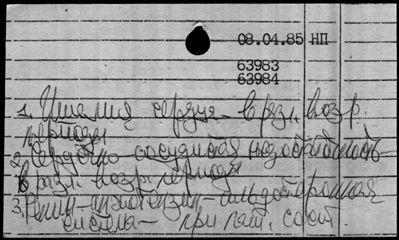 08.04.85 НП
63983
63984
1. Ишемия сердца в разл. возр.
периоды
2. Сердечно сосудистая недостаточность
в разл. возр. периоды
3. Ренин-ангиотензин-альдостероновая
система - при пат. сост.